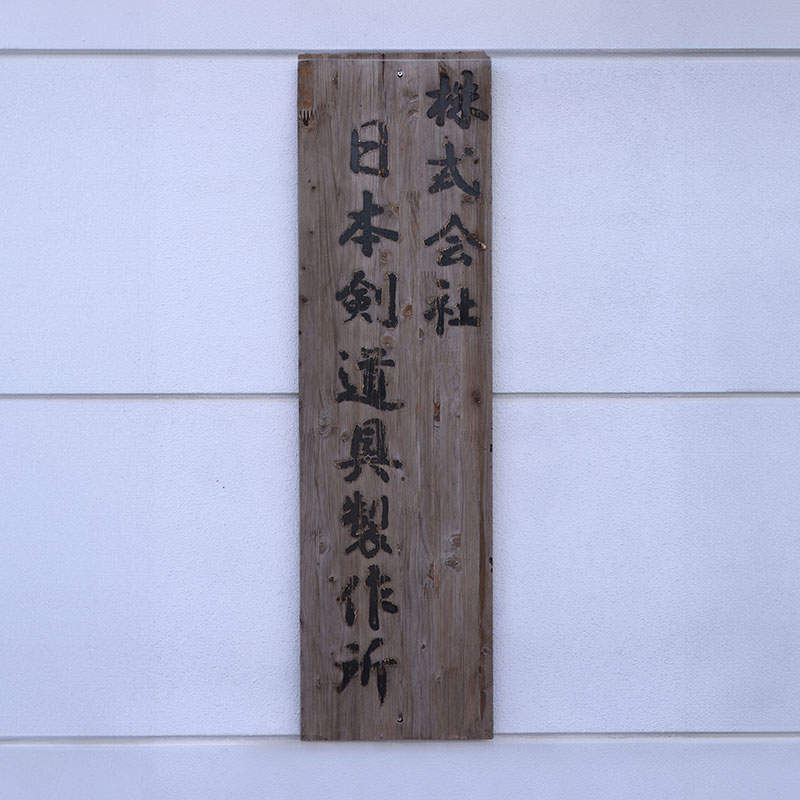 株式会社
日本剣道具製作所